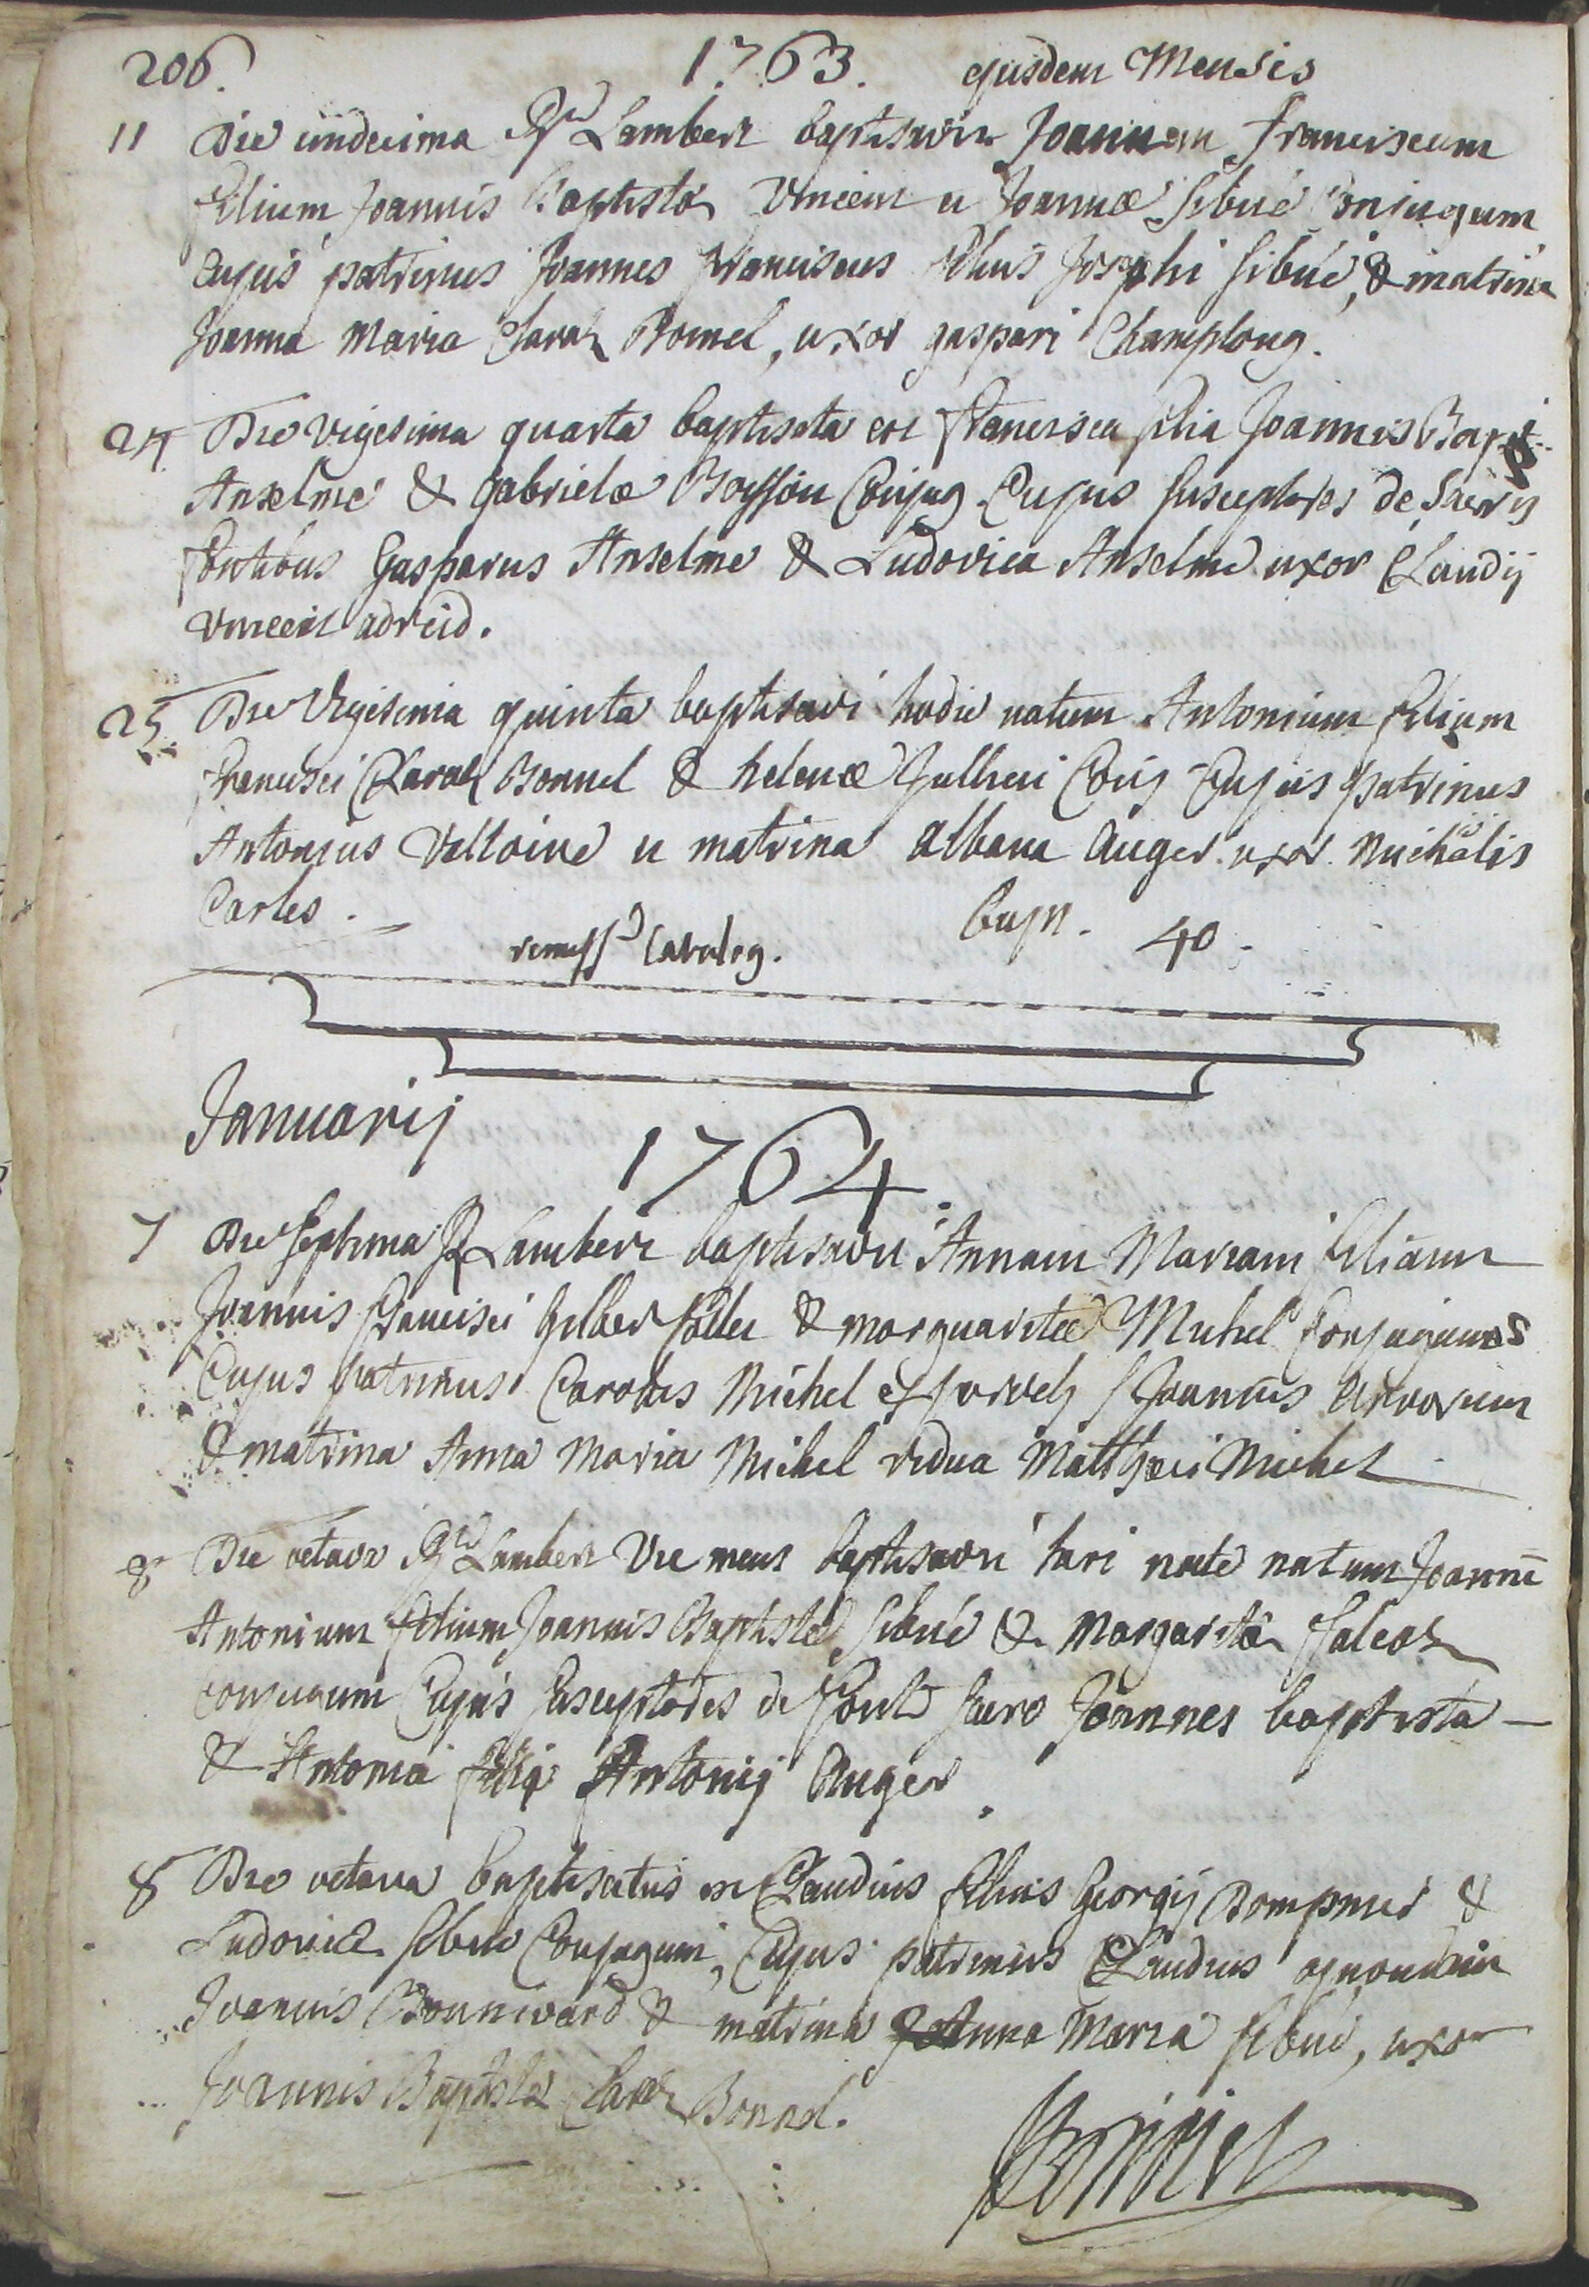 206. 1763. ejusdem Mensis
11 Die undecima Rd Lambert baptisavit Joannem Franciscum
filium Joannis Baptistæ Vincent et Joannæ Sibué Conjugum
Cujus patrinus Joannes Franciscus filius Josephi Sibué, & matrina
Joanna Maria Claraz Bonnel, uxor gaspari Champlong.
24 Die vigesima quarta baptisata est Francisca filia Joannis Bapt.
Anselme & gabrielæ Boysson Conjug. Cujus susceptores de sacris
fontibus Gasparus Anselme & Ludovica Anselme uxor Claudij
Vincent adreid.
25 Die Vigesima quinta baptisavi hodie natum Antonium filium
Francisci Claraz Bonnel & helenæ Jullien Conj. Cujus patrinus
Antonius Valloire et matrina albana Auger uxor Michælis
Carles.
Bapt. 40.
Januarij
1764.
7 Die septima Rd Lambert baptisavit Annam Mariam filiam
Joannis Francisci Gilbert Collet & morguaritæ Michel Conjugum
Cujus patrinus Carolus Michel Joannis
& matrina Anna Maria Michel vidua Matthæi Michel
8 Die octava Rd Lambert Vic meus baptisavit heri nocte natum Joannē
Antonium filium Joannis Baptistæ Sibué & Margaritæ Falcoz
Conjugum Cujus susceptores de fonte sacro Joannes baptista
& Antonia Antonij Auger.
8 Die octava baptisatus est Claudius filius Georgij Dompnier &
Ludovicæ Sibué Conjugum, Cujus patrinus Claudius aquondam
Joannis Bonnivard & matrina Anna Maria Sibué, uxor
Joannis Baptistæ Claraz Bonnel.